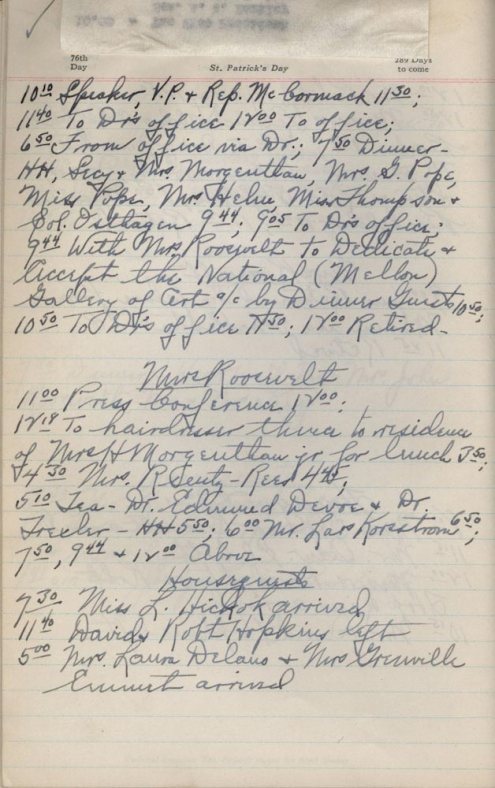 76th
Day
St. Patrick's Day
289 Days
to come
10¹⁰ Speaker, V.P. + Rep. McCormack 11³⁰;
11⁴⁰ To Dr's office 12⁰⁰ To office;
6⁵⁰ From office via Dr.; 7⁵⁰ Dinner-
HH, Secy + Mrs Morgenthau, Mrs. G. Pope,
Miss Pope, Mrs Helm, Miss Thompson +
Col. Osthagen 9⁴⁴; 9⁰⁵ To Dr's office;
9⁴⁴ With Mrs Roosevelt to Dedicate +
Accept the National (Mellon)
Gallery of Art a/c by Dinner Guests 10⁵⁰;
10⁵⁰ To Dr's office 11⁵⁰; 12⁰⁰ Retired-
Mrs Roosevelt
11⁰⁰ Press Conference 12⁰⁰;
12¹⁸ To hairdresser thence to residence
of Mrs H Morgenthau jr for lunch 3⁵⁰;
4³⁰ Mrs. R Deutz-Rees 4⁴⁵;
5¹⁰ Tea- Dr. Edmund Devoe + Dr.
- HH 5⁵⁰; 6⁰⁰ Mr. Lars 6⁵⁰;
7⁵⁰, 9⁴⁴ + 12⁰⁰ Above
Houseguests
7³⁰ Miss L. Hickok arrived
11⁴⁰ David + Robt Hopkins left
5⁰⁰ Mrs. Laura Delano + Mrs Grenville
Emmet arrived